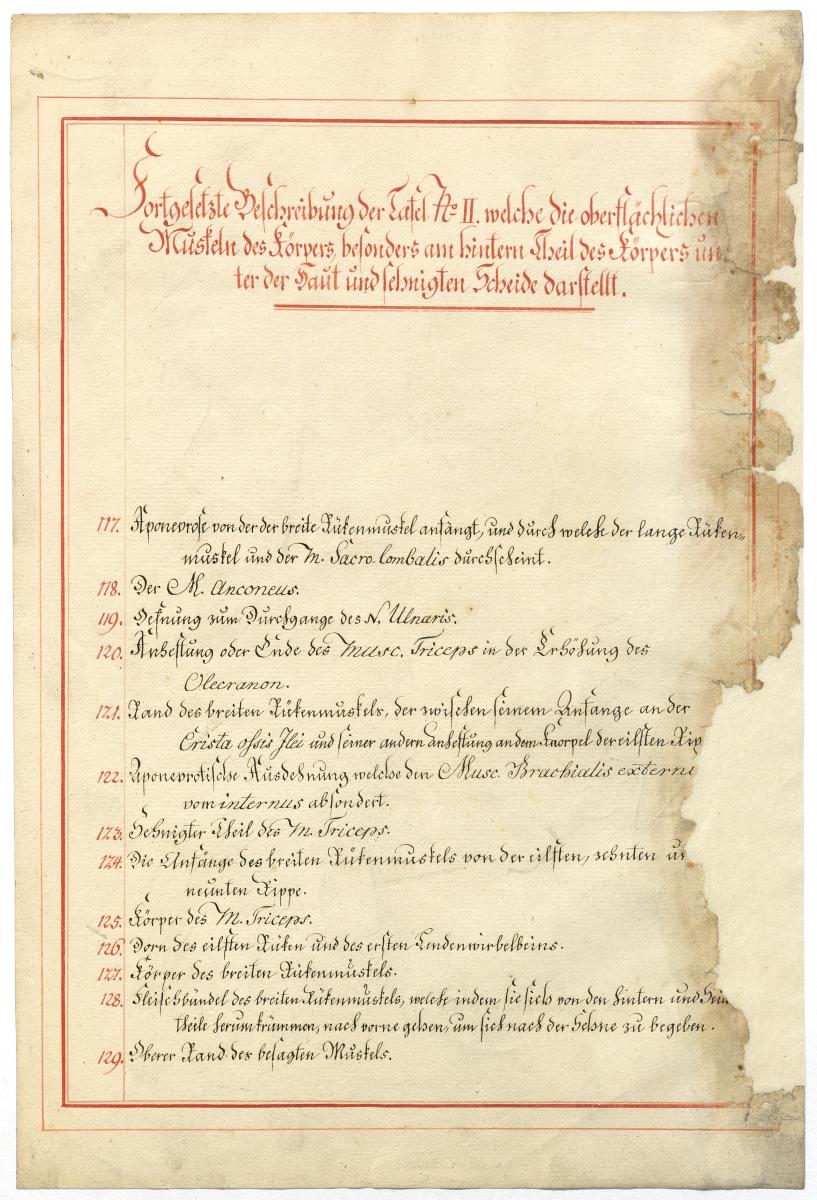 Fortgesetzte Beschreibung der Tafel No II. welche die oberflächlichen
Muskeln des Körpers, besonders am hintern Theil des Körpers un
ter der Haut und sehnigten Scheide darstellt.
117. Aponevrose von der der breite Rükenmuskel anfängt, und durch welche der lange Rüken-
muskel und der M. Sacro-lombalis durchscheint.
118. Der M. Anconeus.
119. Oefnung zum Durchgange des N. Ulnaris.
120. Anheftung oder Ende des Musc. Triceps in der Erhöhung des
Olecranon.
121. Rand des breiten Rükenmuskels, der zwischen seinem Anfange an der
Crista ossis Ilei und seiner andern Anheftung an dem Knorpel der eilften Rip
122. Aponevrotische Ausdehnung welche den Musc. Brachialis extern
vom internus absondert.
123. Sehnigter Theil des M. Triceps.
124. Die Anfänge des breiten Rükenmuskels von der eilften, zehnten un
neunten Rippe.
125. Körper des M. Triceps.
126. Dorn des eilften Rüken und des ersten Lendenwirbelbeins.
127. Körper des breiten Rükenmuskels.
128. Fleischbündel des breiten Rükenmuskels, welche indem sie sich von den hintern und
theile herumkrümmen, nach vorne gehen, um sich nach der Sehne zu begeben.
129. Oberer Rand des besagten Muskels.